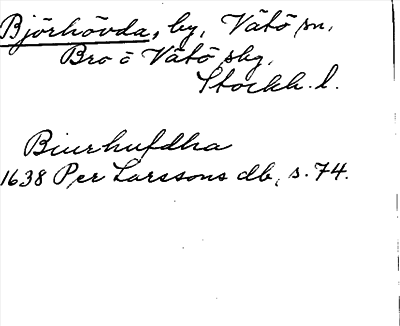 Björhövda, by, Vätö sn,
Bro o Vätö skg,
Stockh. l.
Biurhufdha
1638 Per Larssons db, s. 74.